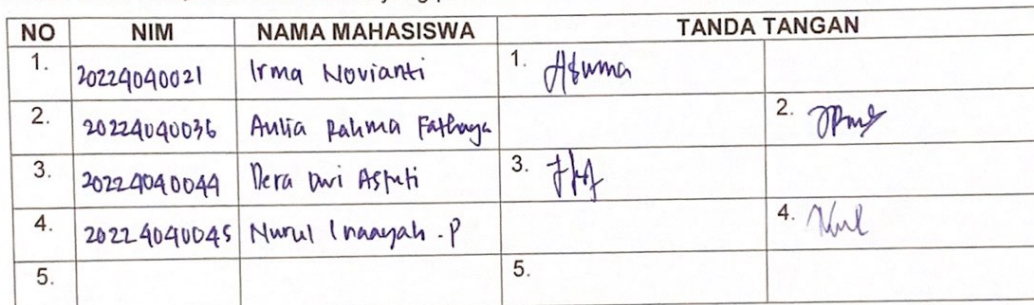 NO NIM NAMA MAHASISWA TANDA TANGAN
1. 20224040021 Irma Novianti 1.
2. 20224040036 Aulia Rahma Fathaya 2.
3. 20224040044 Dera Dwi Astuti 3.
4. 20224040045 Nurul Inaayah . P 4.
5. 5.